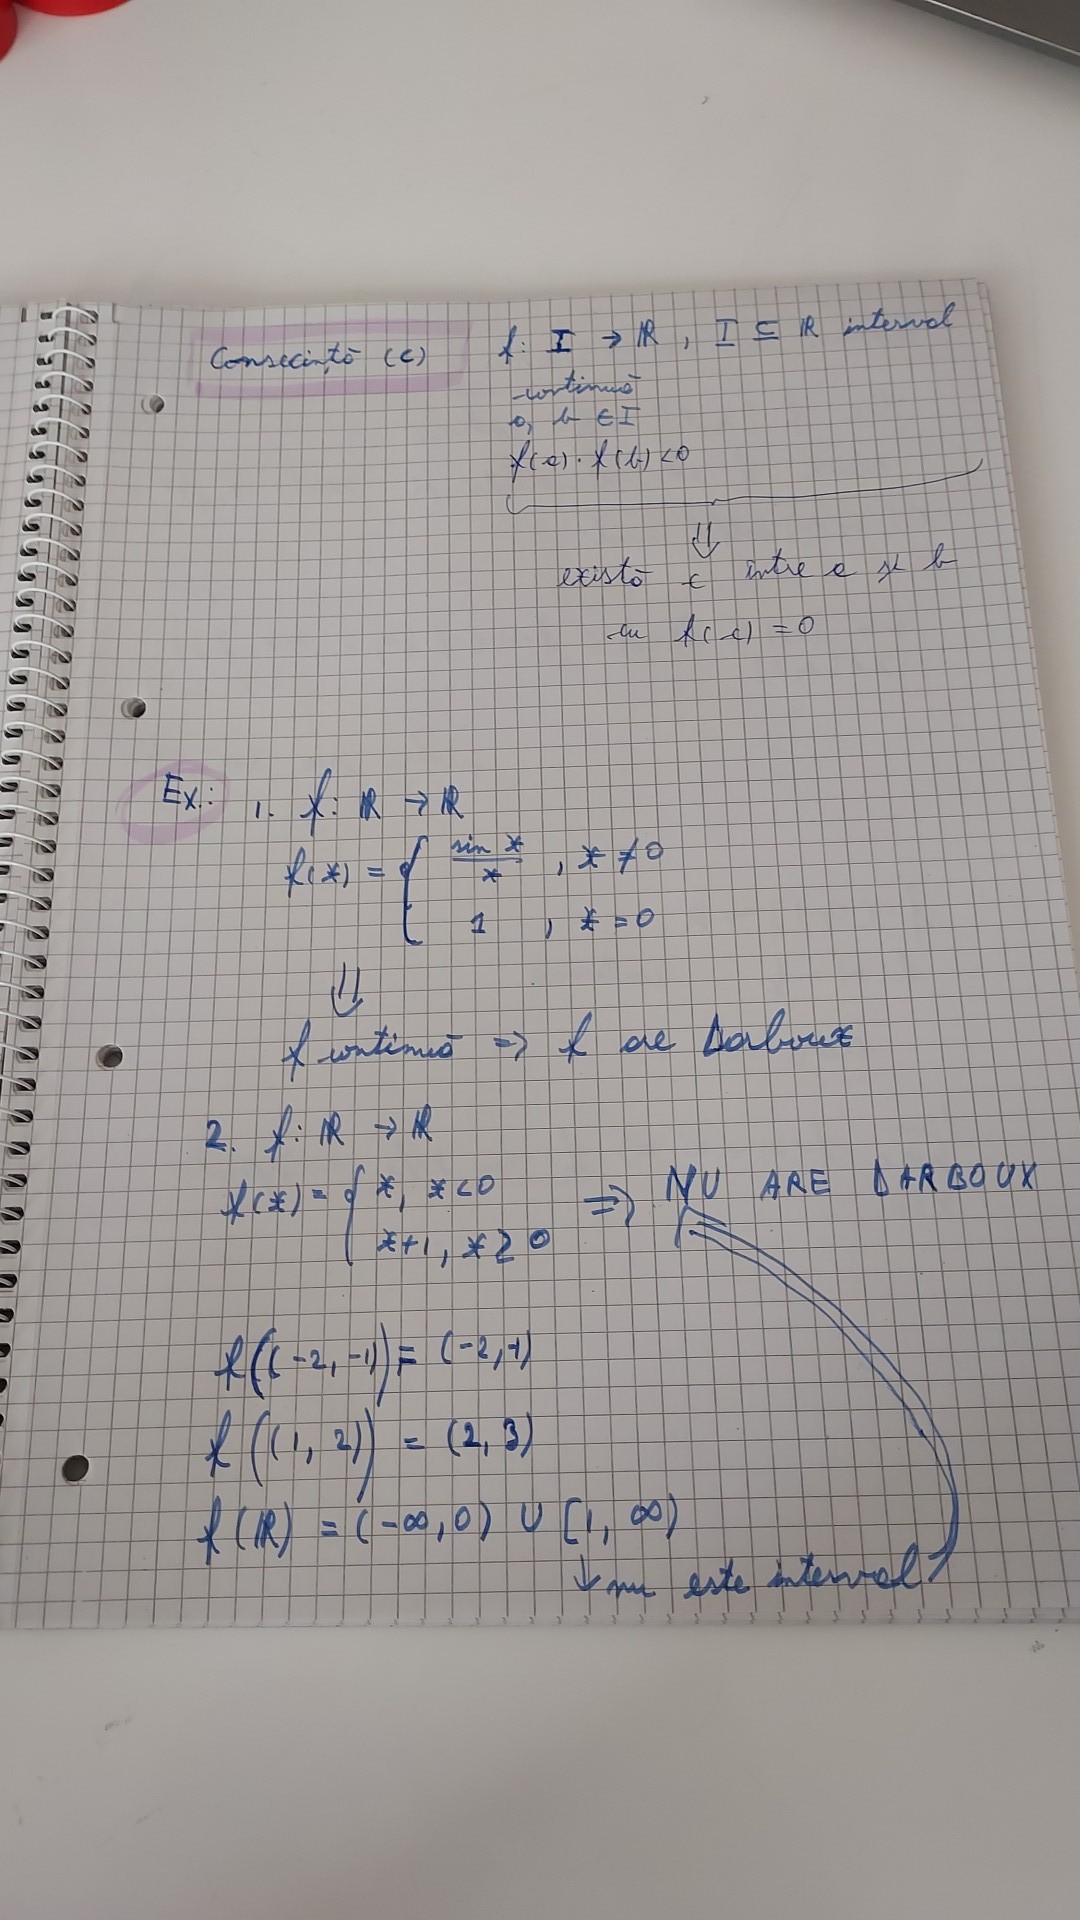 Consecință (C) f: I → ℝ, I ⊆ ℝ interval
continuă
a, b ∈ I
f(a) · f(b) < 0
⇓
există c între a și b
cu f(c) = 0
Ex.: 1. f: ℝ → ℝ
f(x) = { sin x / x , x ≠ 0
1 , x = 0
⇓
f continuă ⇒ f are Darboux
2. f: ℝ → ℝ
f(x) = { x, x < 0
x+1, x ≥ 0 ⇒ NU ARE DARBOUX
f((-2, -1)) = (-2, -1)
f((1, 2)) = (2, 3)
f(ℝ) = (-∞, 0) ∪ [1, ∞)
↓ nu este interval